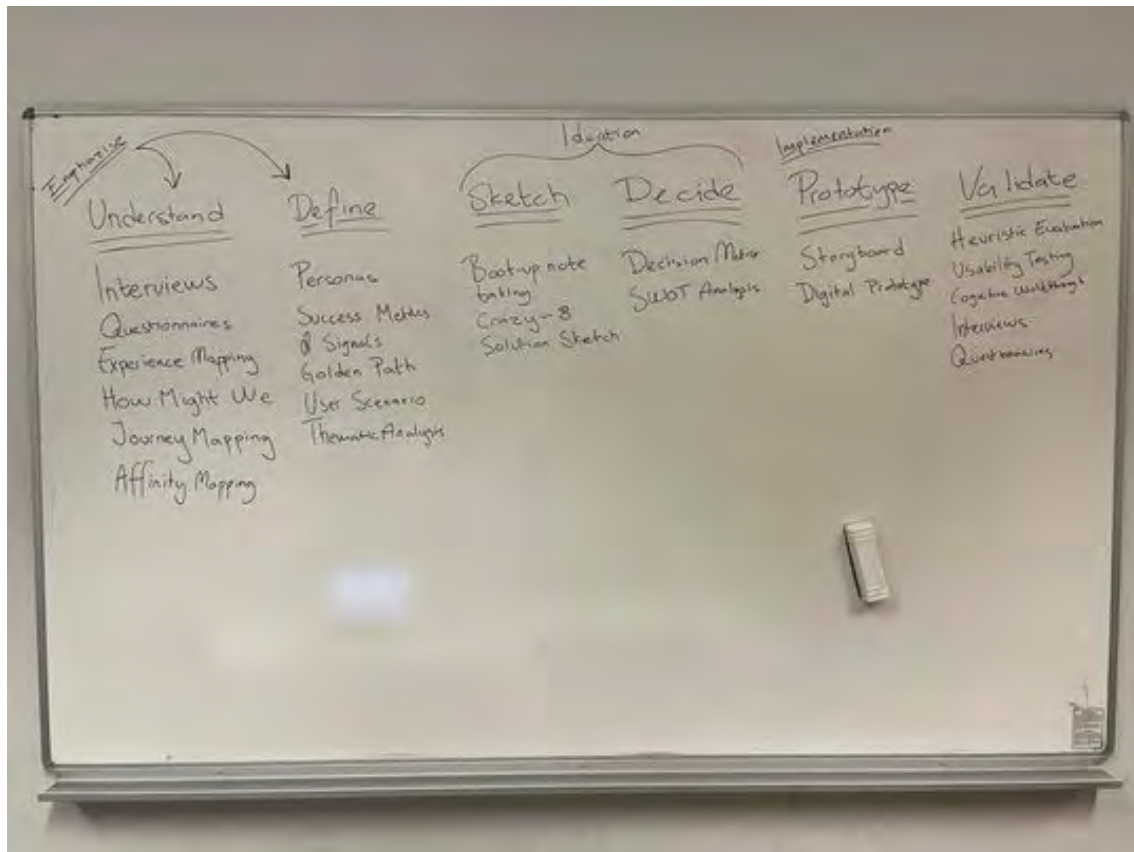 Emphasize
Understand
Interviews
Questionnaires
Experience Mapping
How Might We
Journey Mapping
Affinity Mapping
Define
Personas
Success Metrics
& Signals
Golden Path
User Scenario
Thematic Analysis
Ideation
Sketch
Boot-up note
taking
Crazy-8
Solution Sketch
Decide
Decision Matrix
SWOT Analysis
Implementation
Prototype
Storyboard
Digital Prototype
Validate
Heuristic Evaluation
Usability Testing
Cognitive Walkthrough
Interviews
Questionnaires